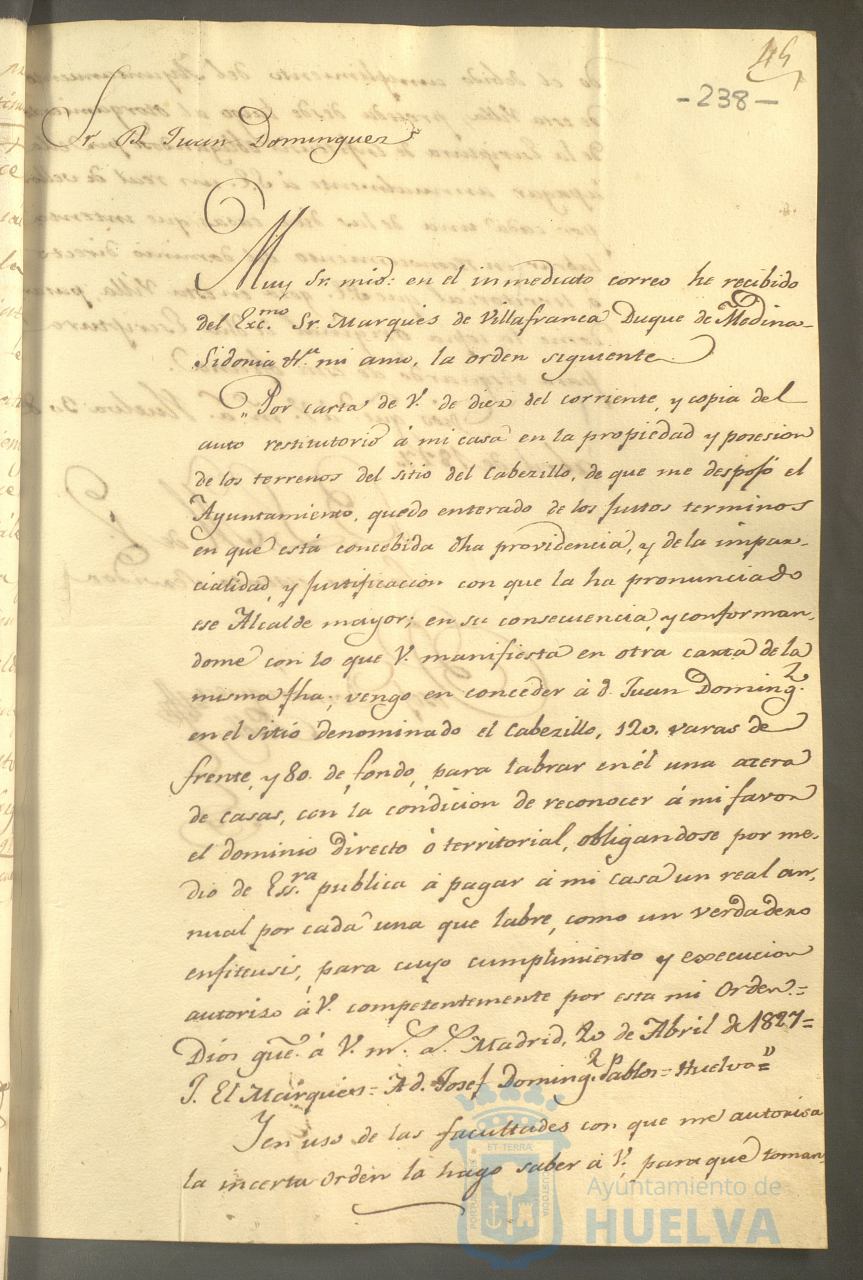 45
-238-
Sr. D. Juan Dominguez
Muy Sr. mio: en el inmediato correo he recibido
del Exc.mo Sr. Marques de Villafranca Duque de Medina-
Sidonia &.ª mi amo, la orden siguiente.
"Por carta de V. de diez del corriente, y copia del
auto restitutorio á mi casa en la propiedad y posesion
de los terrenos del sitio del Cabezillo, de que me despojó el
Ayuntamiento, quedo enterado de los justos terminos
en que está concebida dha providencia, y de la impar-
cialidad, y justificacion con que la ha pronunciado
ese Alcalde mayor; en su consecuencia, y conforman-
dome con lo que V. manifiesta en otra carta de la
misma fha; vengo en conceder á d. Juan Doming.z
en el sitio denominado el Cabezillo, 120. varas de
frente, y 80. de fondo, para labrar en él una acera
de casas, con la condicion de reconocer á mi favor
el dominio directo ó territorial, obligandose por me-
dio de Ess.ra publica á pagar á mi casa un real an-
nual por cada una que labre, como un verdadero
enfiteusis, para cuyo cumplimiento y execucion
autorizo á V. competentemente por esta mi Orden.=
Dios gue. á V. m.s a.s Madrid, 20 de Abril de 1827=
P. El Marques= A d. Josef Doming.z Pablos= Huelva="
Y en uso de las facultades con que me autorisa
la incerta orden la hago saber á V. para que toman-
ET TERRA
Ayuntamiento de
HUELVA